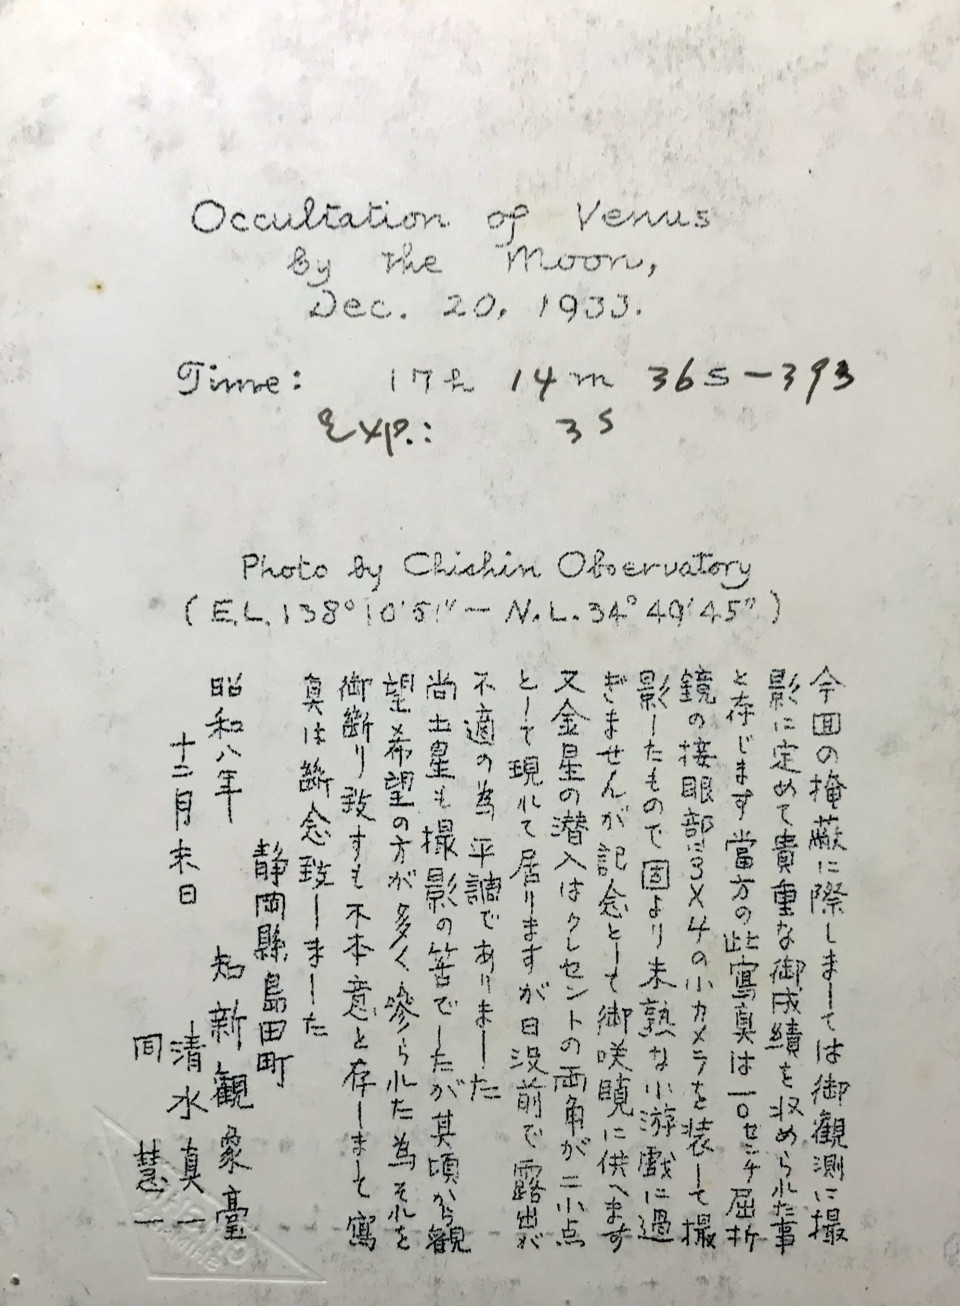 Occultation of Venus
by the Moon,
Dec. 20, 1933.
Time: 17h 14m 36s—39s
Exp.: 3s
Photo by Chishin Observatory
(E.L. 138° 10′ 51″ — N.L. 34° 49′ 45″)
今回の掩蔽に際しましては御観測に撮
影に定めて貴重な御成績を収められた事
と存じます當方の此寫真は一〇センチ屈折
鏡の接眼部に3×4の小カメラを装して撮
影したもので固より未熟な小游戯に過
ぎませんが記念として御咲覧に供へます
又金星の潜入はクレセントの両角が二小点
として現れて居りますが日没前で露出が
不適の為平調でありました
尚土星も撮影の筈でしたが其頃から観
望希望の方が多く參られた為それを
御断り致すも不本意と存しまして寫
真は断念致しました
静岡縣島田町
昭和八年 知新観象臺
十二月末日 清水真一
同 慧一